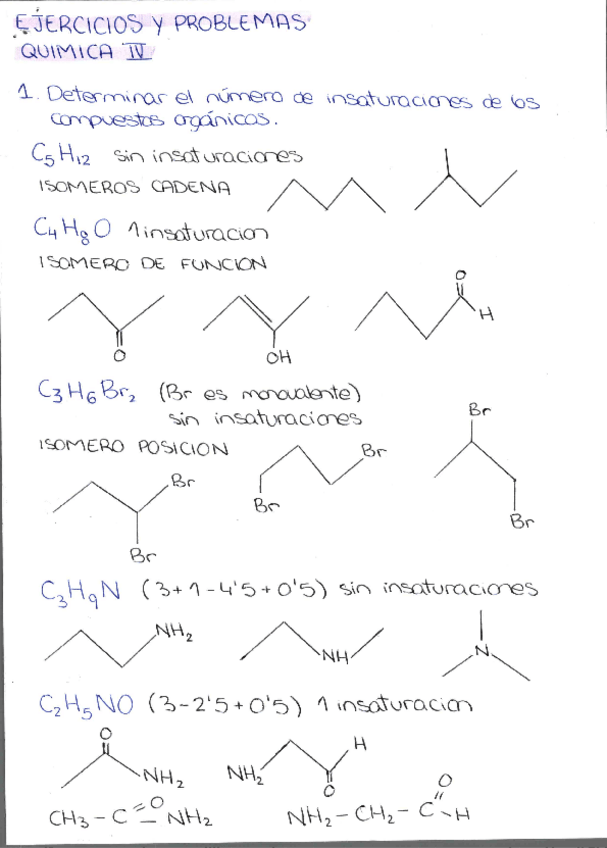 EJERCICIOS Y PROBLEMAS
QUIMICA IV
1. Determinar el número de insaturaciones de los
compuestos orgánicos.
C5H12 sin insaturaciones
ISOMEROS CADENA
C4H8O 1 insaturacion
ISOMERO DE FUNCION
O
H
O
OH
C3H6Br2 (Br es monovalente)
sin insaturaciones
Br
ISOMERO POSICION
Br
Br
Br
Br
Br
C3H9N (3+1-4'5+0'5) sin insaturaciones
NH2
NH
N
C2H5NO (3-2'5+0'5) 1 insaturacion
O
H
NH2
NH2
O
O
CH3-C=O-NH2
NH2-CH2-C-H